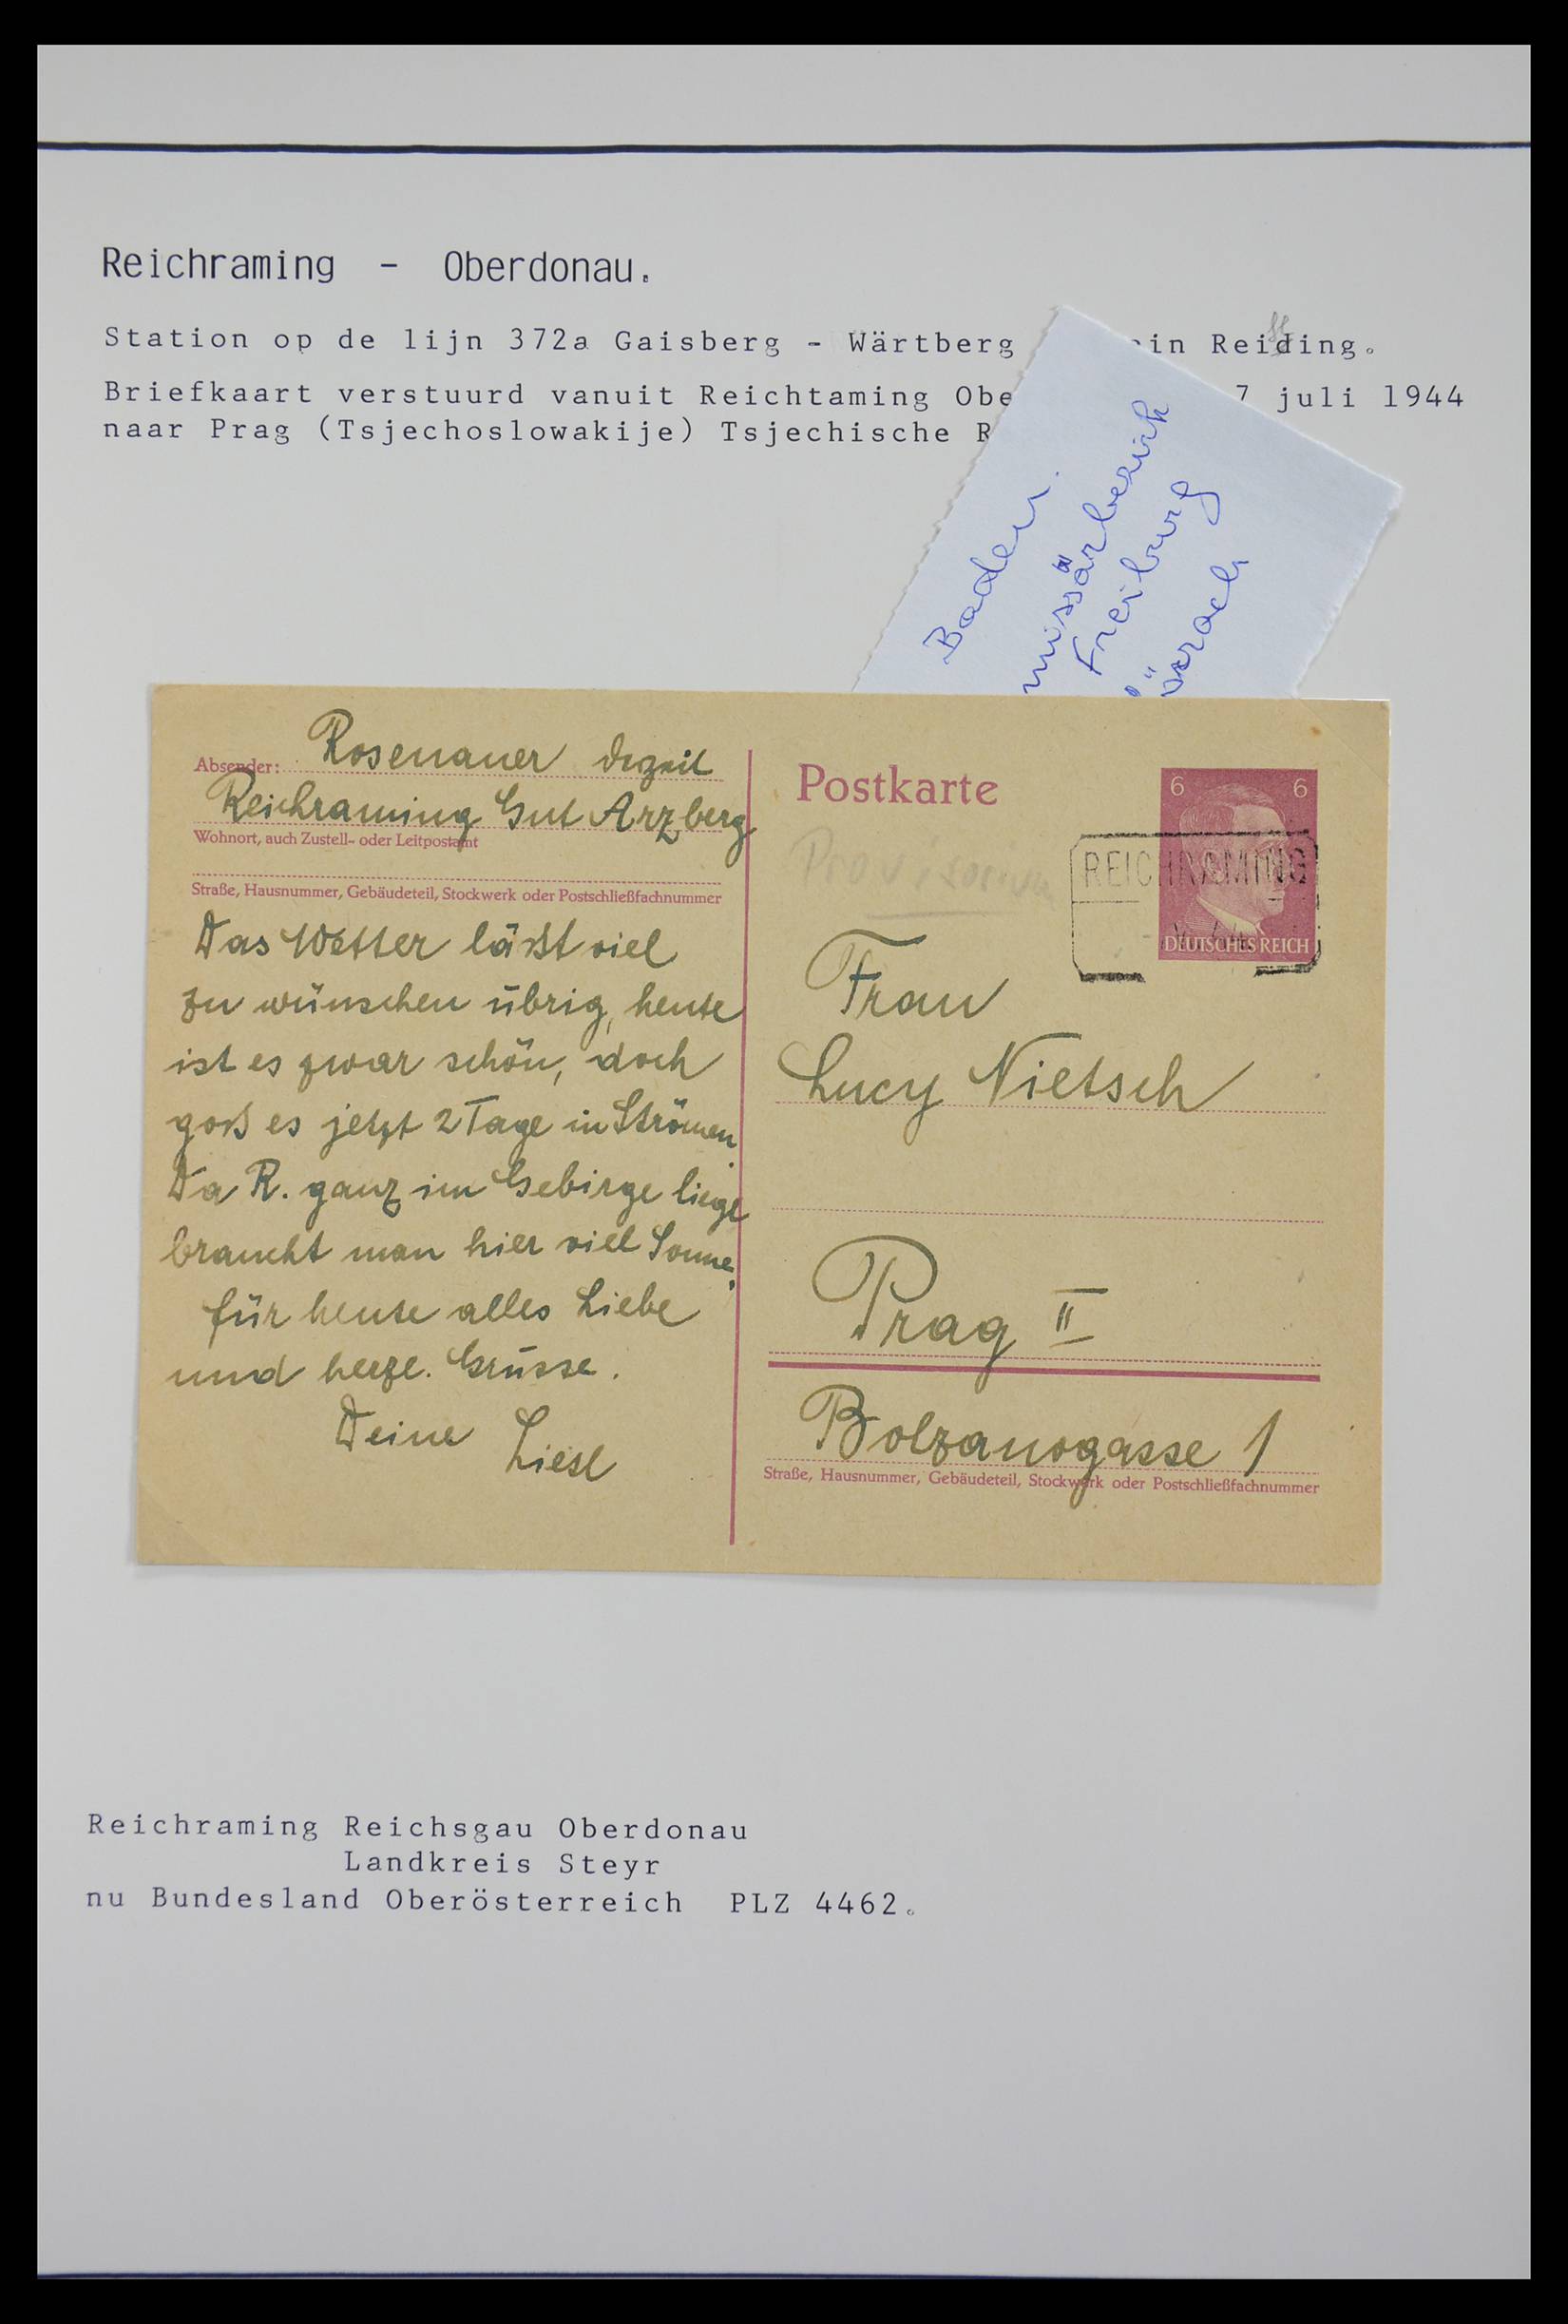 Reichraming - Oberdonau.
Station op de lijn 372a Gaisberg - Wärtberg in Reiding.
Briefkaart verstuurd vanuit Reichtaming Obe 7 juli 1944
naar Prag (Tsjechoslowakije) Tsjechische R
Baden
missärbezirk
Freiburg
Lörrach
Absender: Rosenauer derzeit
Reichraming Gut Arzberg
Wohnort, auch Zustell- oder Leitpostamt
Straße, Hausnummer, Gebäudeteil, Stockwerk oder Postschließfachnummer
Das Wetter läßt viel
zu wünschen übrig, heute
ist es zwar schön, doch
goß es jetzt 2 Tage in Strömen.
Da R. ganz im Gebirge liegt
braucht man hier viel Sonne.
für heute alles Liebe
und herzl. Grüsse.
Deine Liesl
Postkarte
6 6
DEUTSCHES REICH
REICHRAMING
Provisorium
Frau
Lucy Nietsch
Prag II
Bolzanogasse 1
Straße, Hausnummer, Gebäudeteil, Stockwerk oder Postschließfachnummer
Reichraming Reichsgau Oberdonau
Landkreis Steyr
nu Bundesland Oberösterreich PLZ 4462.